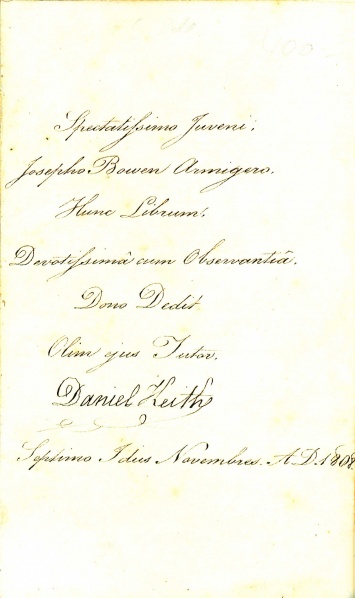 Spectatiſsimo Juveni,
Josepho Bowen Armigero.
Hunc Librum,
Devotiſsimâ cum Observantiâ.
Dono Dedit
Olim ejus Tutor.
Daniel Keith
Septimo Idus Novembres. A.D. 1808.